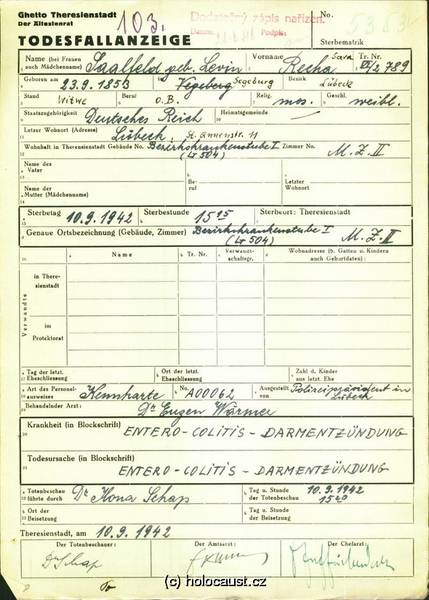 Ghetto Theresienstadt
Der Ältestenrat
103.
Dodatečný zápis nařízen.
Datum: Podpis:
No.
TODESFALLANZEIGE
Sterbematrik
Name (bei Frauen auch Mädchenname) Saalfeld geb. Levin Vorname Recha Sara Tr. Nr. 789
Geboren am 23.9.1853 in Segeberg Bezirk Lübeck
Stand Witwe Beruf o.B. Relig. mos. Geschl. weibl.
Staatszugehörigkeit Deutsches Reich Heimatsgemeinde
Letzter Wohnort (Adresse) Lübeck, St. Annenstr. 11
Wohnhaft in Theresienstadt Gebäude No. Bezirkskrankenstube I (Lg 504) Zimmer No. M. Z. II
Name des Vater Beruf Letzter Wohnort
Name der Mutter (Mädchenname)
Sterbetag 10.9.1942 Sterbestunde 15 15 Sterbeort: Theresienstadt
Genaue Ortsbezeichnung (Gebäude, Zimmer) Bezirkskrankenstube I (Lg 504) M. Z. II
Name Tr. Nr. Verwandtschaftsgr. Wohnadresse (b. Gatten u. Kindern auch Geburtsdaten)
Verwandte
in Theresienstadt
im Protektorat
Tag der letzt. Eheschliessung Ort der letzt. Eheschliessung Zahl d. Kinder aus letzt. Ehe
Art des Personalausweises Kennkarte No. A00062 Ausgestellt von Polizeipräsident in Lübeck
Behandelnder Arzt Dr Eugen Wärmer
Krankheit (in Blockschrift)
ENTERO-COLITIS - DARMENTZÜNDUNG
Todesursache (in Blockschrift)
ENTERO-COLITIS - DARMENTZÜNDUNG
Totenbeschau führte durch Dr Ilona Schap Tag u. Stunde der Totenbeschau 10.9.1942
Ort der Beisetzung Tag u. Stunde der Beisetzung
Theresienstadt, am 10.9.1942
Der Totenbeschauer: Der Amtsarzt: Der Chefarzt:
Dr Schap
(c) holocaust.cz